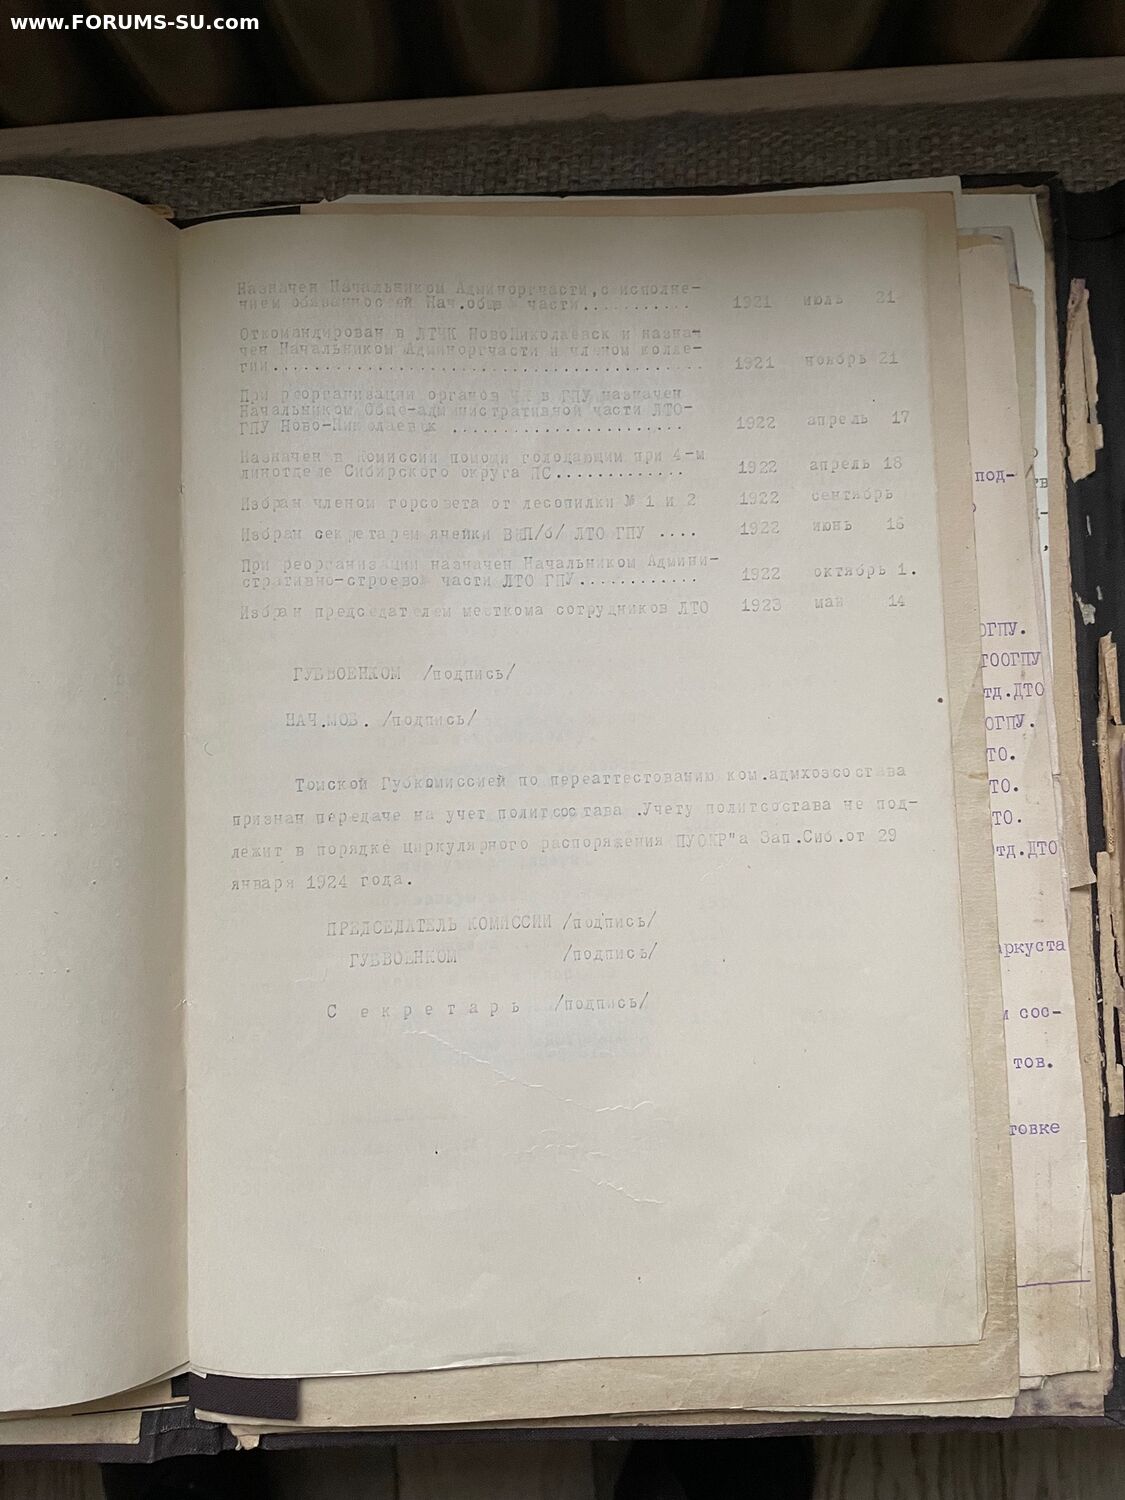 www.FORUMS-SU.com
Назначен Начальником Админоргчасти,с исполне-
нием обязанностей Нач.общей части........... 1921 июль 21
Откомандирован в ЛТЧК НовоНиколаевск и назна-
чен Начальником Админоргчасти и членом колле-
гии......................................... 1921 ноябрь 21
При реорганизации органов ЧК в ГПУ назначен
Начальником Обще-административной части ЛТО-
ГПУ Ново-Николаевск ...................... 1922 апрель 17
Назначен в Комиссии помощи голодающим при 4-м
линотделе Сибирского округа ПС............. 1922 апрель 18
Избран членом горсовета от лесопилки № 1 и 2 1922 сентябрь
Избран секретарем ячейки ВКП/б/ ЛТО ГПУ .... 1922 июнь 16
При реорганизации назначен Начальником Админи-
стративно-строевой части ЛТО ГПУ............ 1922 октябрь 1.
Избран председателем месткома сотрудников ЛТО 1923 май 14
ГУБВОЕНКОМ /подпись/
НАЧ.МОБ. /подпись/
Томской Губкомиссией по переаттестованию ком.адмхозсостава
признан передаче на учет политсостава .Учету политсостава не под-
лежит в порядке циркулярного распоряжения ПУОКР"а Зап.Сиб.от 29
января 1924 года.
ПРЕДСЕДАТЕЛЬ КОМИССИИ /подпись/
ГУБВОЕНКОМ /подпись/
С е к р е т а р ь /подпись/
под-
ОГПУ.
ТООГПУ
тд.ДТО
ОГПУ.
ТО.
ТО.
ТО.
тд.ДТО
аркуста
и сос-
тов.
товке